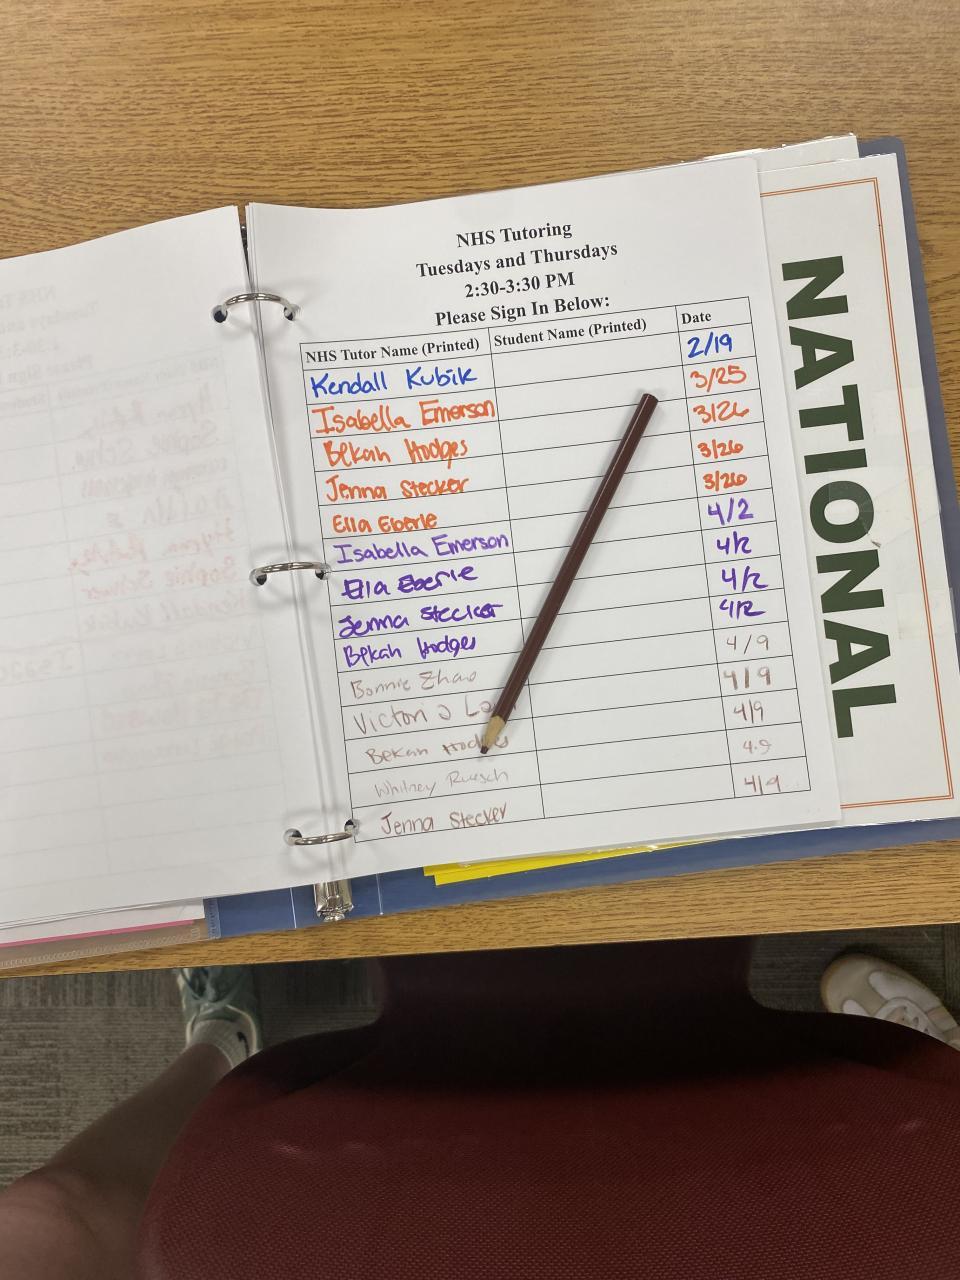 NHS Tutoring
Tuesdays and Thursdays
2:30-3:30 PM
Please Sign In Below:
NHS Tutor Name (Printed) Student Name (Printed) Date
Kendall Kubik 2/19
Isabella Emerson 3/25
Bekah Hodges 3/26
Jenna Stecker 3/26
Ella Eberle 3/26
Isabella Emerson 4/2
Ella Eberle 4/2
Jenna Stecker 4/2
Bekah Hodges 4/2
Bonnie Zhao 4/9
Victoria 4/9
Bekah Hodges 4/9
Whitney Ruesch 4.9
Jenna Stecker 4/9
NATIONAL